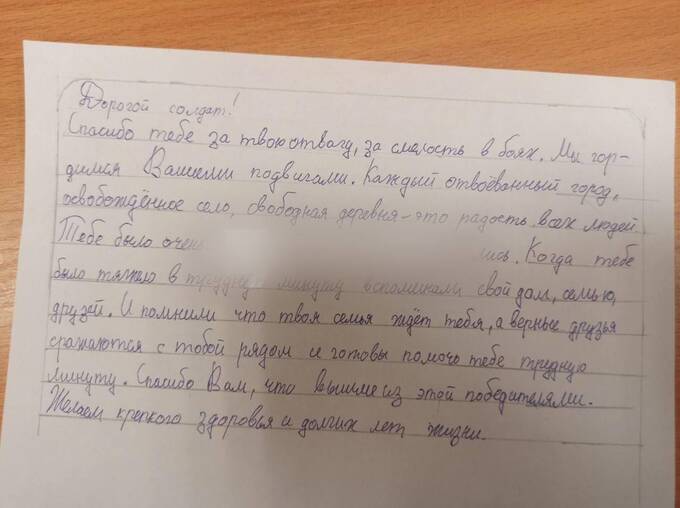 Дорогой солдат!
Спасибо тебе за твою отвагу, за смелость в боях. Мы гор-
димся Вашими подвигами. Каждый отвоёванный город,
освобождённое село, свободная деревня-это радость всех людей
Тебе было очень. Когда тебе
было тяжело в трудную минуту вспоминали свой дом, семью,
друзей. И помнили что твоя семья ждёт тебя, а верные друзья
сражаются с тобой рядом и готовы помочь тебе трудную
минуту. Спасибо Вам, что вышли из этой победителями.
Желаем крепкого здоровья и долгих лет жизни.